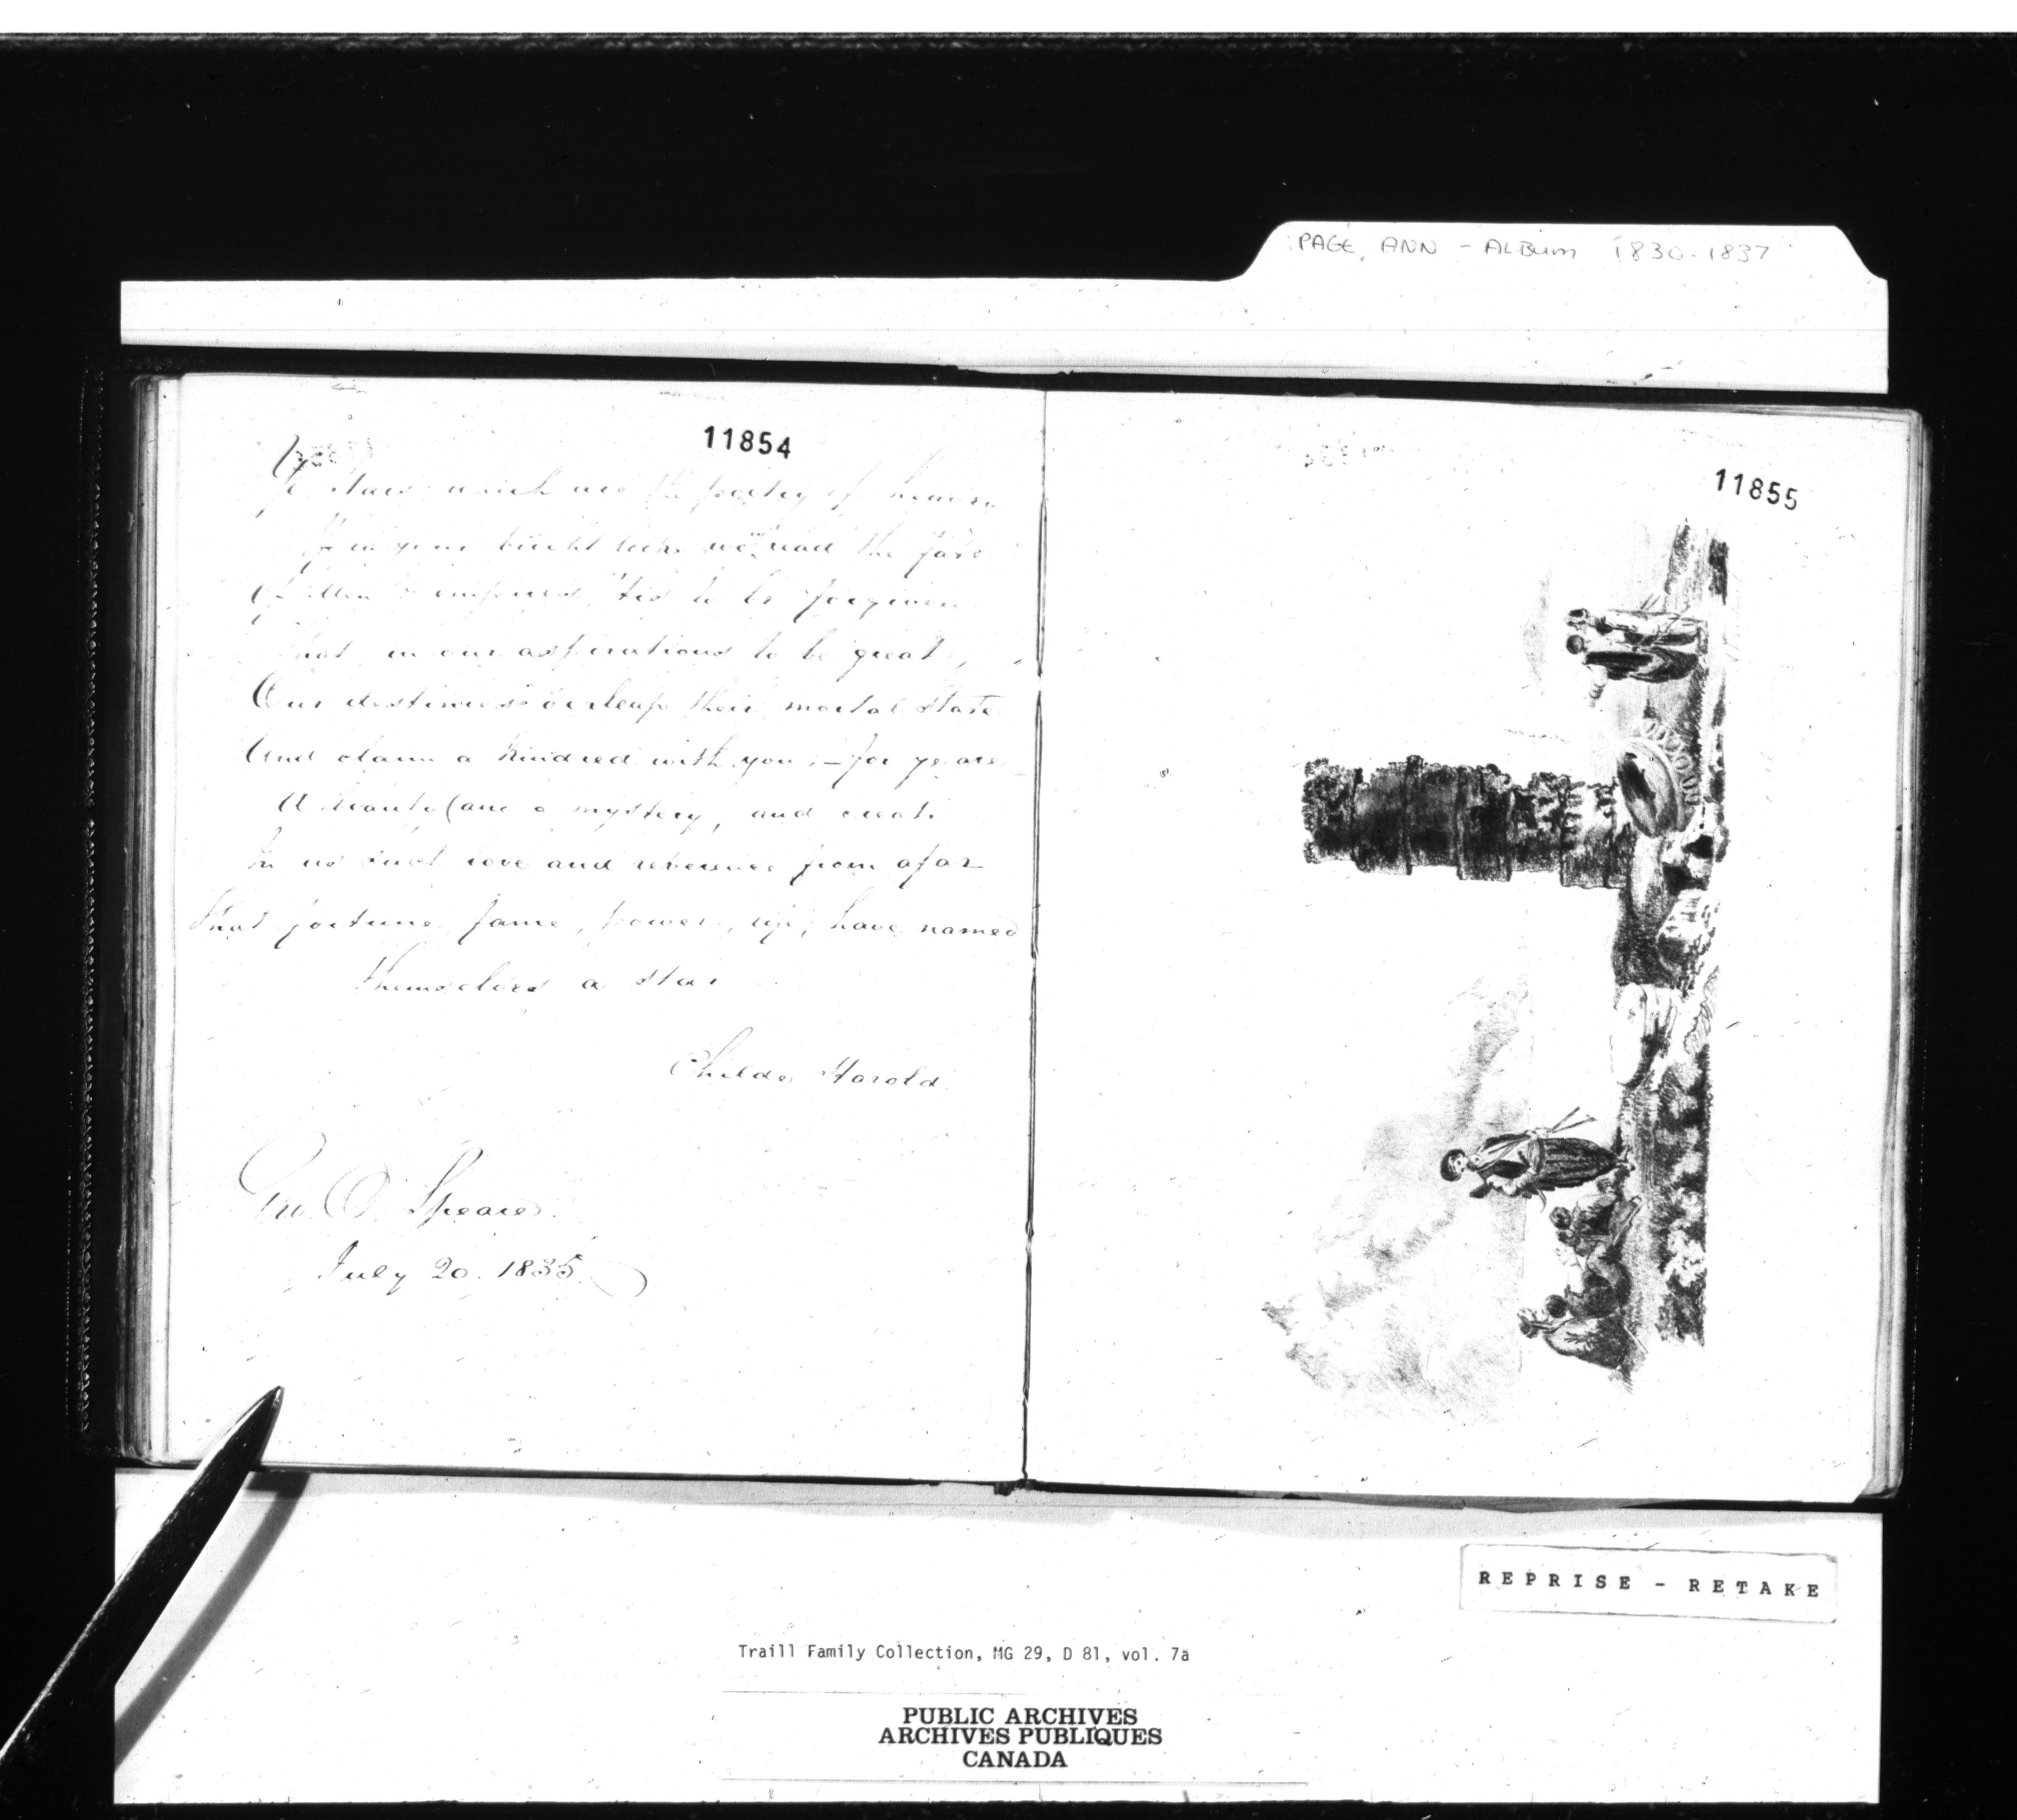 PAGE, ANN - ALBUM 1830-1837
11854
Ye stars which are the poetry of heaven
If in your bright looks we wd read the fate
Of Men & empires, 'tis to be forgiven
That in our aspirations to be great,
Our destinies o'erleap their mortal state
And claim a kindred with you;- for ye are
A beauty and a mystery, and create
In us such love and reverence from afar
That fortune, fame, power, life, have named
themselves a star
Childe Harold.
Geo. O. Speare.
July 20. 1835.
11855
REPRISE - RETAKE
Traill Family Collection, MG 29, D 81, vol. 7a
PUBLIC ARCHIVES
ARCHIVES PUBLIQUES
CANADA